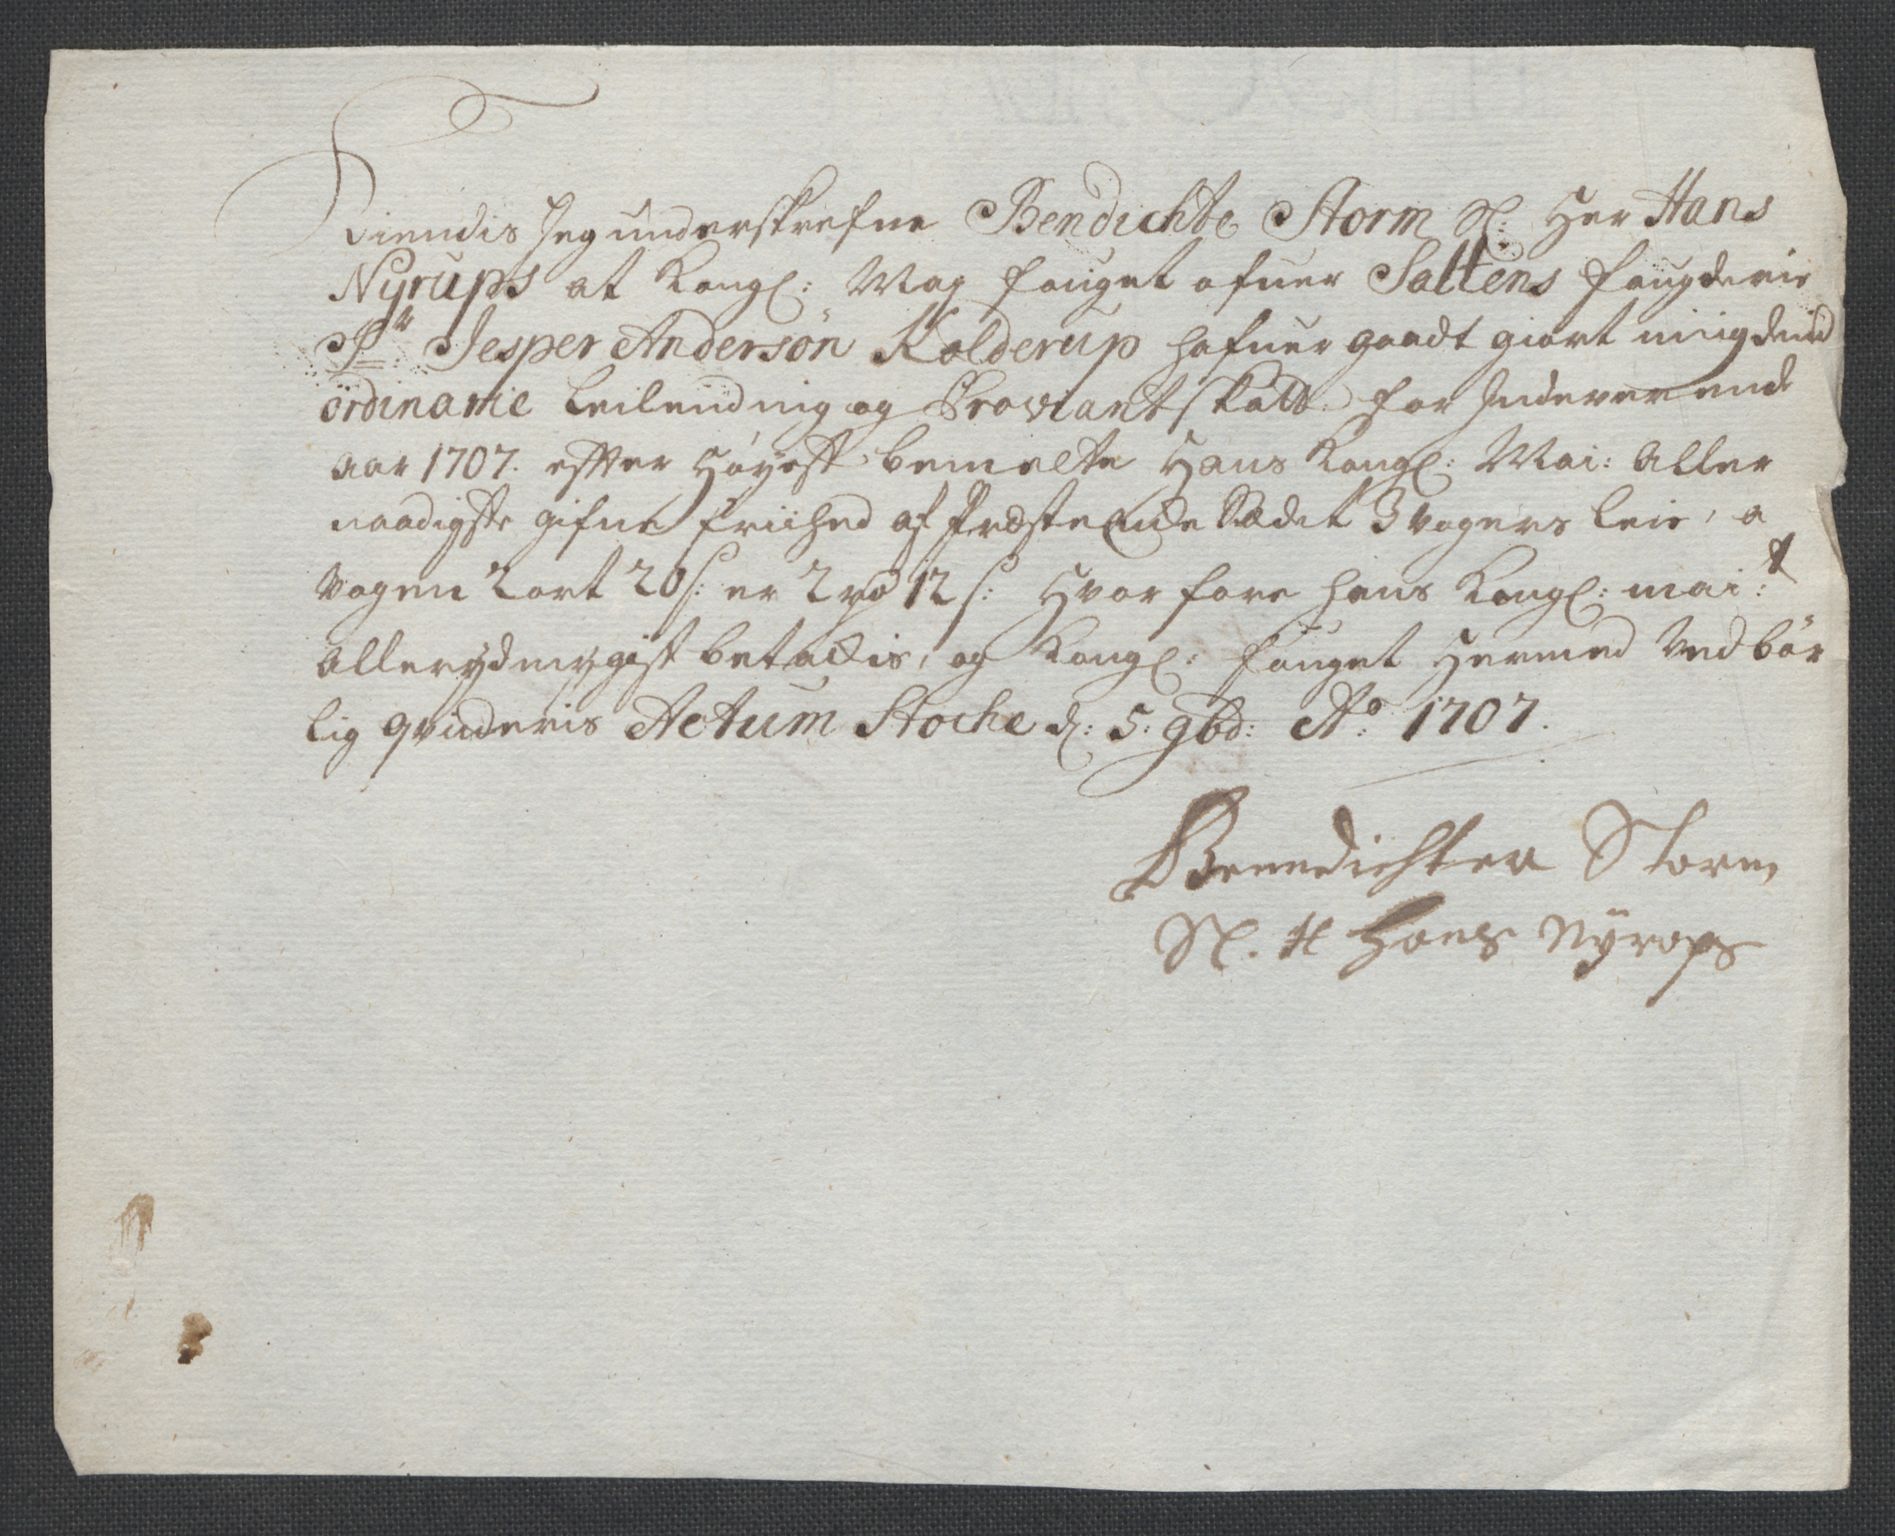 Kiendis Jeg underskrefne Bendichte Storm Sl: Her Hans
Nyrups at Kongl: May fouget ofuer Saltens fougderie
Sr Jesper Andersøn Kolderup hafuer goedt giort miig dend
ordinarie leilending og Proviant skatt: for Indeverende
aar 1707. effter høyest bemelte Hans Kongl: Mai: aller
naadigste gifne friihed af Præste Sædet 3 vogers leie, a
vogen 2 ort 20 s: er 2 rd 12 s: Hvor fore hans Kongl: mai:t
allerydmygist betackis, og Kongl: fouget hermed ved bør
lig qvideris Actum Stocke d: 5: 9bd: Ao: 1707.
Benedichte Storm
Sl. H Hans Nÿrops